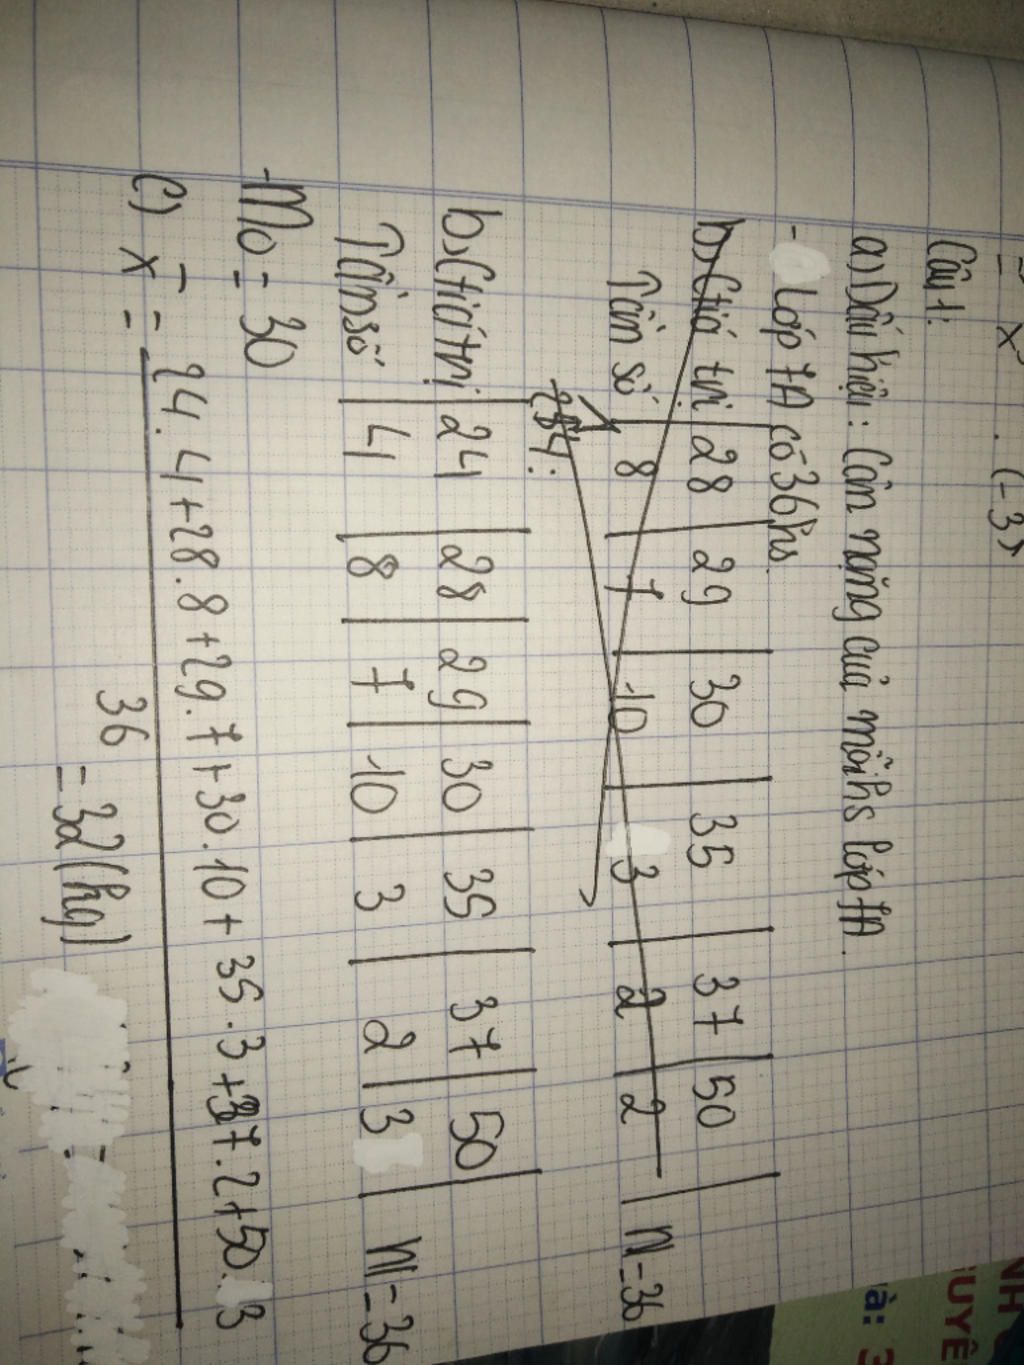 = x . (-3)
Câu 1:
a) Dấu hiệu: Cân nặng của mỗi hs lớp 7A.
- Lớp 7A có 36 hs.
b) Giá trị 28 29 30 35 37 50
Tần số 8 7 10 3 2 2 N=36
b) Giá trị 24 28 29 30 35 37 50
Tần số 4 8 7 10 3 2 3 N=36
- Mo = 30
c) x = 24.4+28.8+29.7+30.10+35.3+37.2+50.3
36
= 32 (kg)